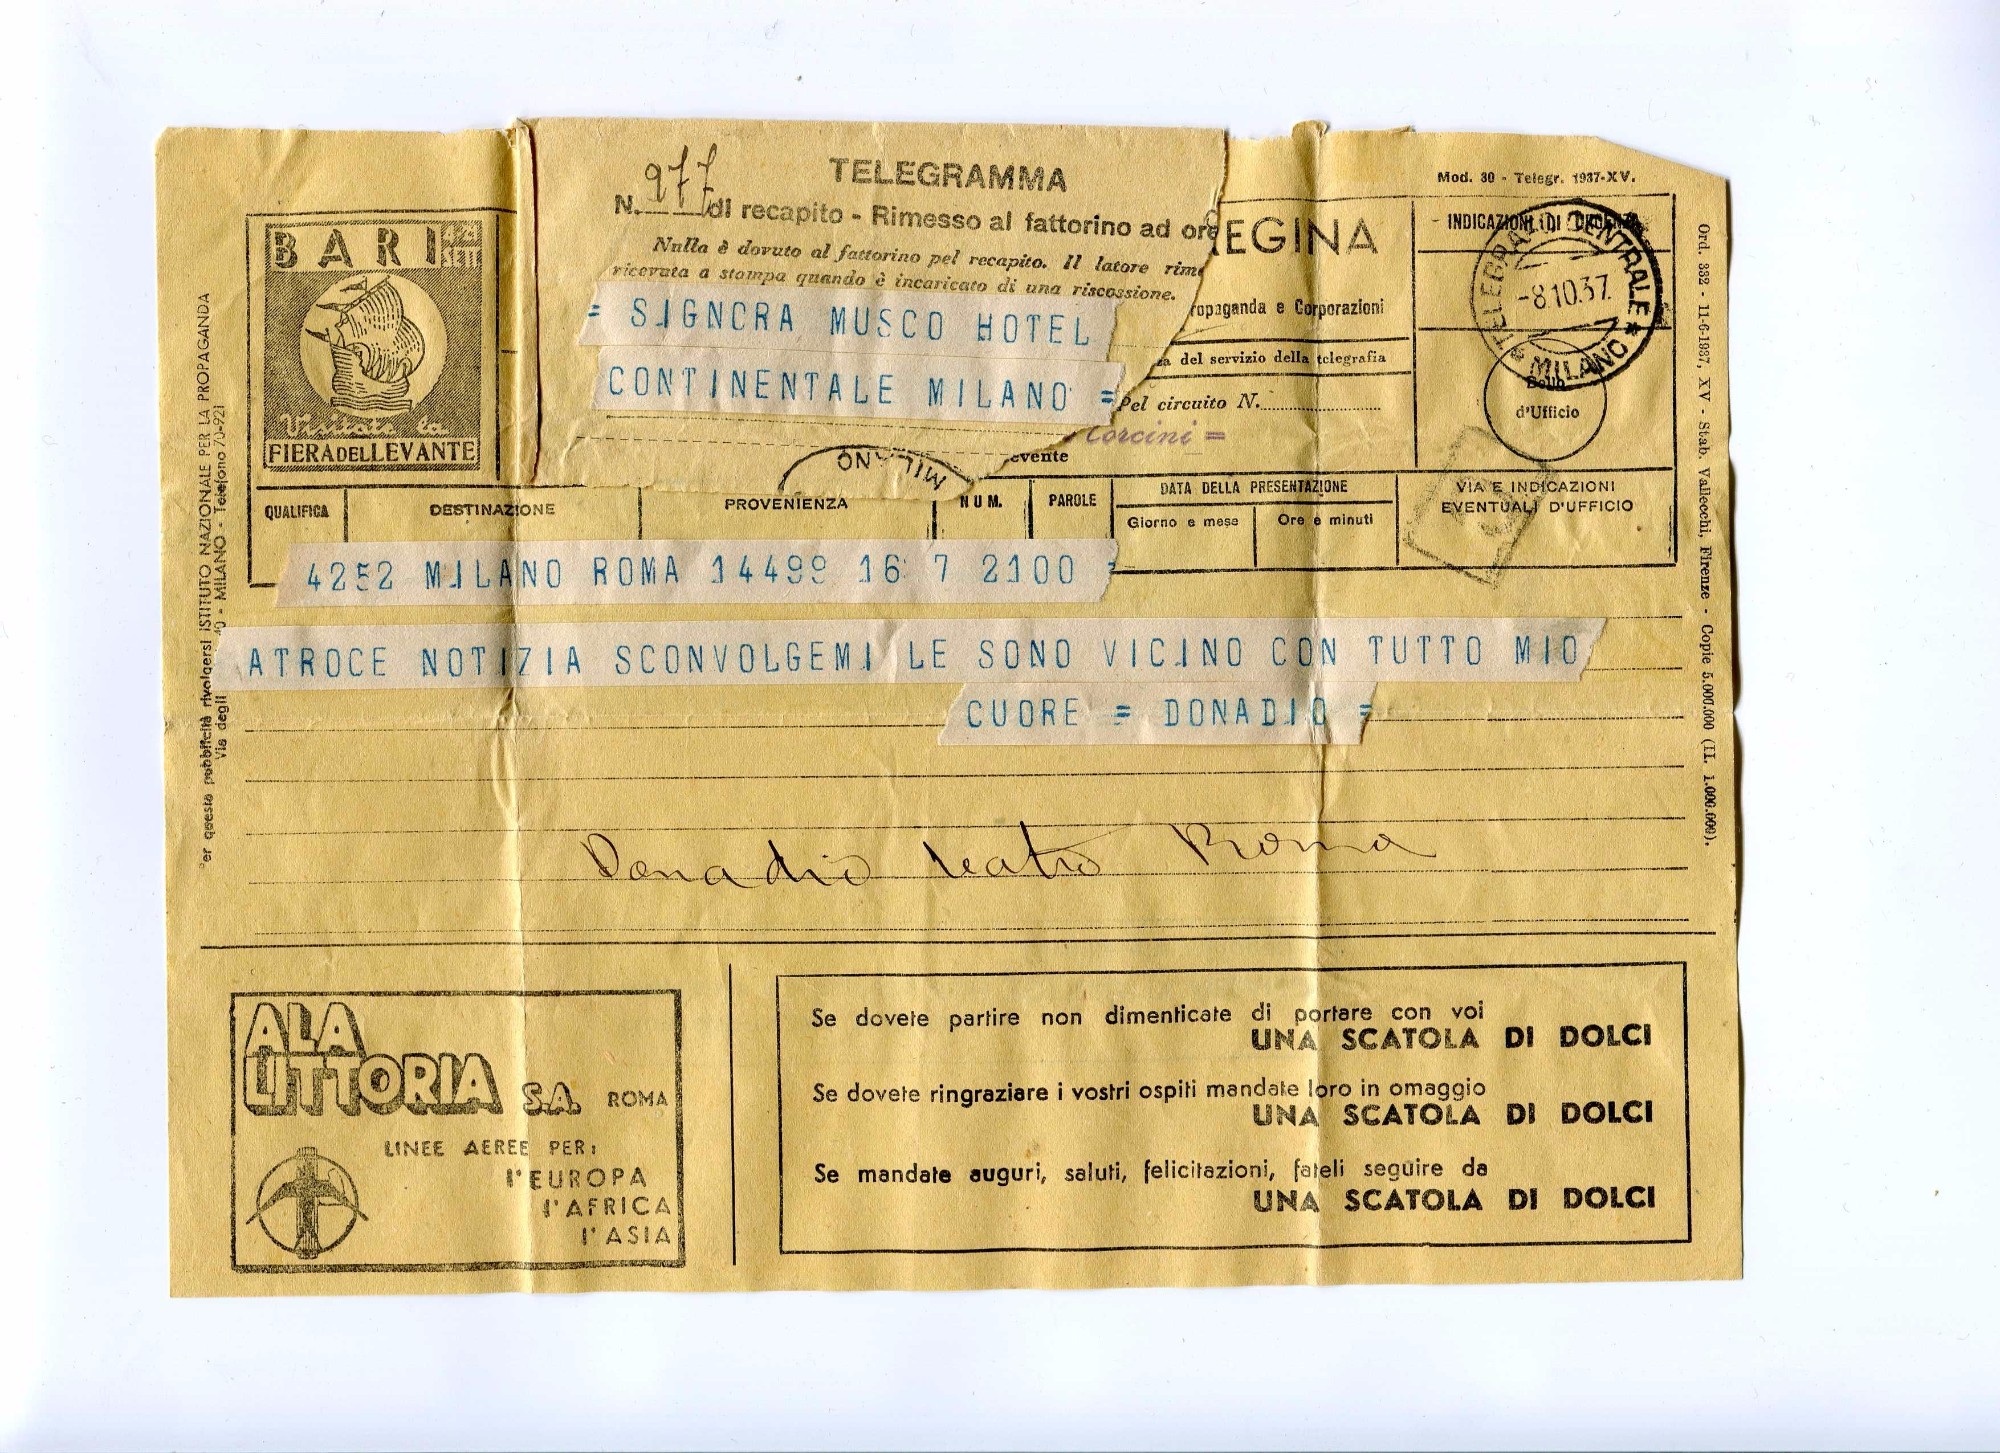 TELEGRAMMA
N. 977 di recapito - Rimesso al fattorino ad ore
Nulla è dovuto al fattorino pel recapito. Il latore rime
ricevuta a stampa quando è incaricato di una riscossione.
= SIGNORA MUSCO HOTEL
CONTINENTALE MILANO =
MILANO
BARI
SETT
Visitate la
FIERA DEL LEVANTE
Mod. 30 - Telegr. 1937-XV.
EGINA
ropaganda e Corporazioni
del servizio della telegrafia
Pel circuito N.
Corcini =
evente
INDICAZIONI DI URGENZA
TELEGRAFO CENTRALE
-8.10.37.
* MILANO *
Bollo
d'Ufficio
QUALIFICA
DESTINAZIONE
PROVENIENZA
NUM.
PAROLE
DATA DELLA PRESENTAZIONE
Giorno e mese
Ore e minuti
VIA E INDICAZIONI
EVENTUALI D'UFFICIO
4252 MILANO ROMA 14499 16 7 2100 =
ATROCE NOTIZIA SCONVOLGEMI LE SONO VICINO CON TUTTO MIO
CUORE = DONADIO =
Donadio teatro Roma
er questa pubblicità rivolgersi ISTITUTO NAZIONALE PER LA PROPAGANDA
Via degli 40 - MILANO - Telefono 70-921
Ord. 332 - 11-6-1937, XV - Stab. Vallecchi, Firenze - Copie 5.000.000 (II. 1.000.000).
ALA
LITTORIA S.A. ROMA
LINEE AEREE PER:
l'EUROPA
l'AFRICA
l'ASIA
Se dovete partire non dimenticate di portare con voi
UNA SCATOLA DI DOLCI
Se dovete ringraziare i vostri ospiti mandate loro in omaggio
UNA SCATOLA DI DOLCI
Se mandate auguri, saluti, felicitazioni, fateli seguire da
UNA SCATOLA DI DOLCI